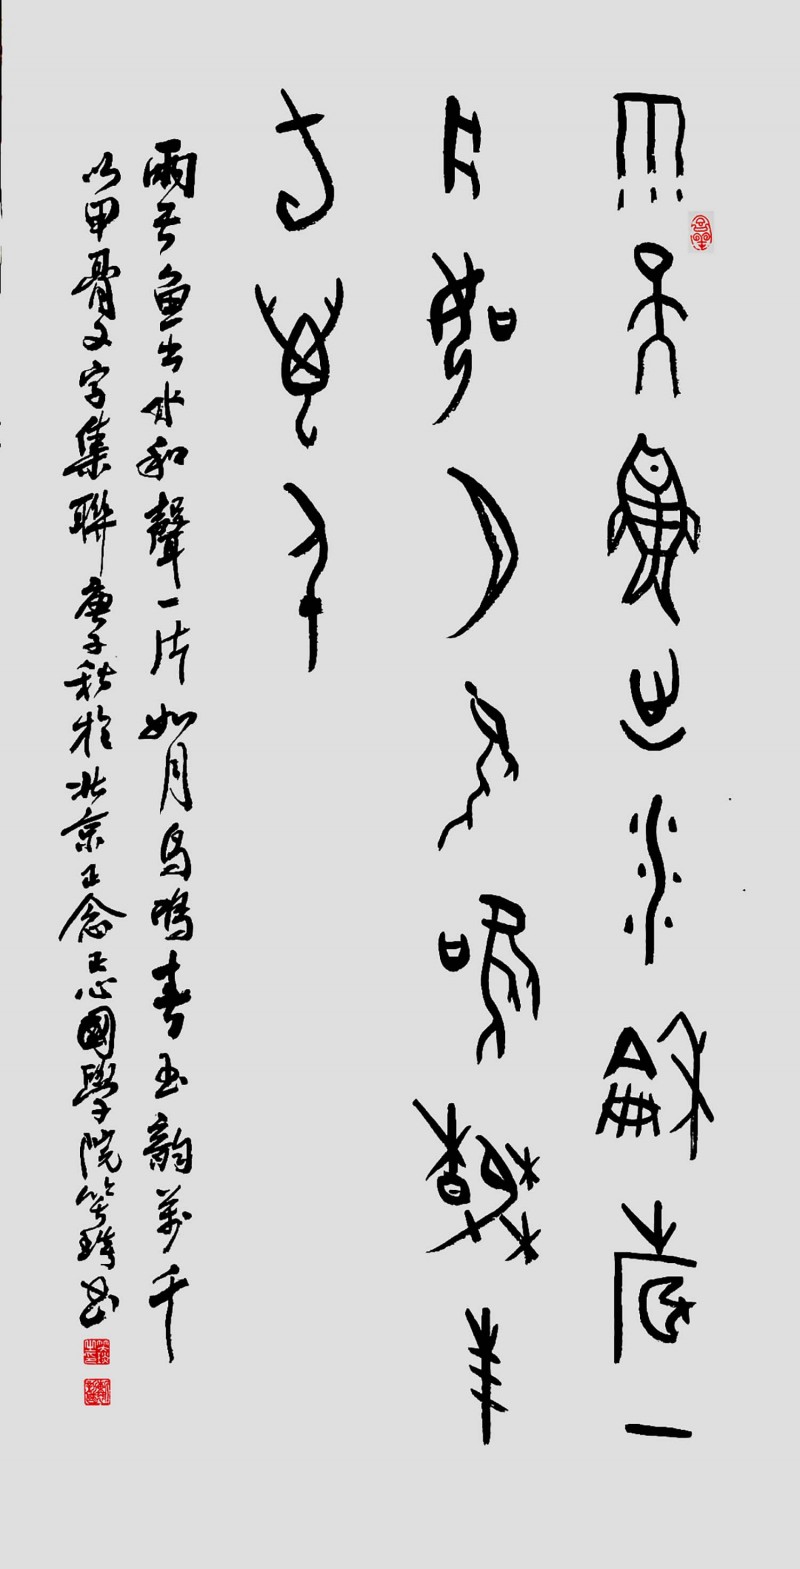 雨天鱼出水龢聲一
片如月鳥鳴春玉
韵萬千
雨天鱼出水和聲一片如月鸟鸣春玉韵萬千
以甲骨文字集聯庚子秋於北京正念正心國學院书